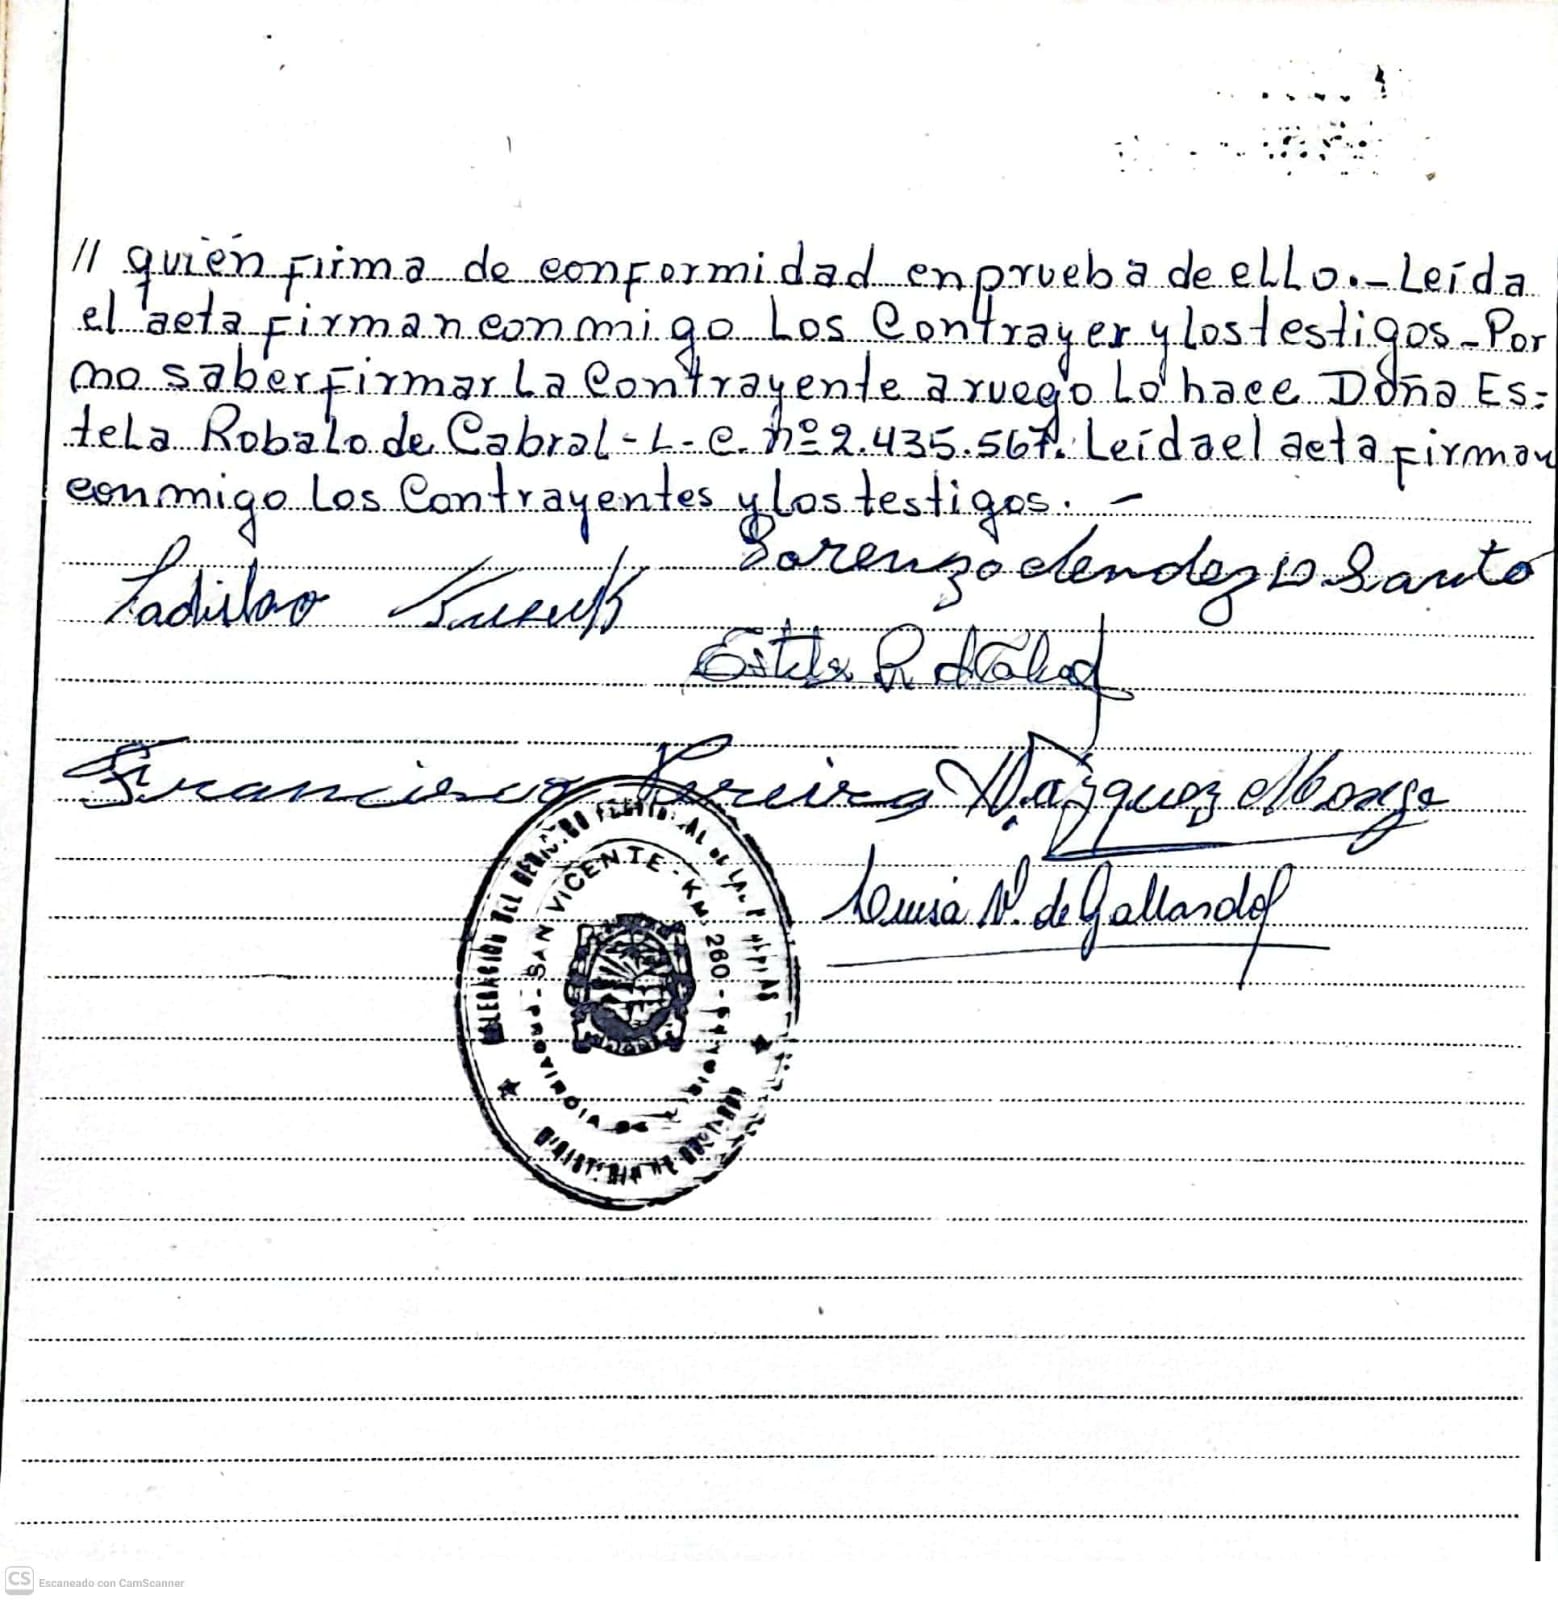 // quién firma de conformidad en prueba de ello.- Leída
el acta firman conmigo los Contrayer y los testigos - Por
no saber firmar la Contrayente a ruego lo hace Doña Es=
tela Robalo de Cabral - L - C. nº 2.435.567. Leída el acta firman
conmigo los Contrayentes y los testigos. -
Lorenzo Mendez D Santo
Ladislao
Estela R de Cabral
Francisco Pereira Vázquez
Luisa N. de Gallardo
SAN VICENTE - KM. 260
PROVINCIA DE
CS Escaneado con CamScanner